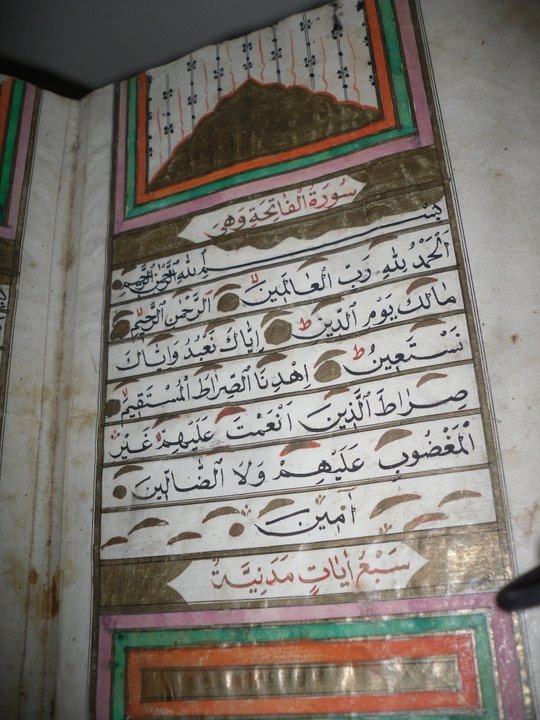 سُورَةُ الْفَاتِحَةِ وَهِيَ
بِسْمِ اللهِ الرَّحْمٰنِ الرَّحِيمِ
اَلْحَمْدُ لِلّٰهِ رَبِّ الْعَالَمِينَ اَلرَّحْمٰنِ الرَّحِيمِ
مَالِكِ يَوْمِ الدِّينِ ط اِيَّاكَ نَعْبُدُ وَاِيَّاكَ
نَسْتَعِينُ ط اِهْدِنَا الصِّرَاطَ الْمُسْتَقِيمَ
صِرَاطَ الَّذِينَ اَنْعَمْتَ عَلَيْهِمْ غَيْرِ
الْمَغْضُوبِ عَلَيْهِمْ وَلَا الضَّالِّينَ
اٰمِينَ
سَبْعُ اٰيَاتٍ مَدَنِيَّةٌ